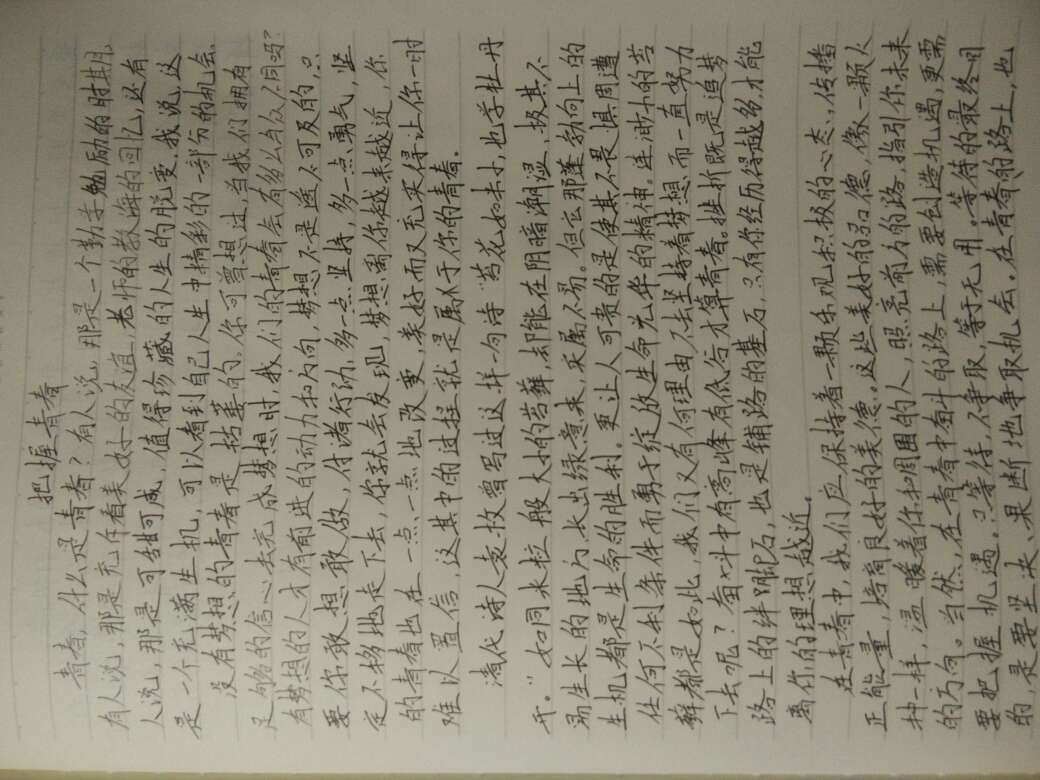 把握青春
青春,什么是青春?有人说,那是一个勤辛勉励的时期,
有人说,那是充斥着美好的友谊,老师的教海的回忆,还有
人说,那是可甜可咸,值得珍藏的人生的脱变,我说,这
是一个充满生机,可以看到自己人生中精彩的一部分的机会.
没有梦想的青春是枯萎的。你可曾想过,当我们拥有
足够的信心去完成梦想时,我们的青春会有多么与众不同吗?
有梦想的人才有前进的动力和方向,梦想不是遥不可及的,只
要你敢想敢做,付诸行动,多一点坚持,多一点勇气,坚
定不移地走下去,你就会发现,梦想离你越来越近,你
的青春也在一点一点地改变,美好而又充实得让你一时
难以置信,这其中的过程就是属于你的青春.
清代诗人袁枚曾写过这样一句诗“苔花如米小,也学牡丹
开。”如同米粒一般大小的苔藓,却能在阴暗潮湿,极其不
易生长的地方,长出绿意来,实属不易。但它那蓬勃向上的
生机都是生命的胜利。更让人可贵的是使其不畏惧周遭
任何不利条件而勇于绽放生命光华的精神。连渺小的苔
藓都是如此,我们又有何理由不去坚持着梦想而一直努力
下去呢?奋斗中有高峰有低谷才算青春。挫折既是追梦
路上的绊脚石,也是铺路的基石,只有你经历得越多,才能
离你的理想越近。
在青春中,我们应保持着一颗乐观积极的心态,传播
正能量,培育良好的美德。这些美好的品德,像一颗火
种一样,温暖着你和周围的人,照亮前方的路,指引你未来
的方向。当然,在青春中奋斗的路上,需要创造机遇,更需
要把握机遇。只等待,不争取,等于无用。等待的最终目
的,是要坚决、果断地争取机会。在青春的路上,也